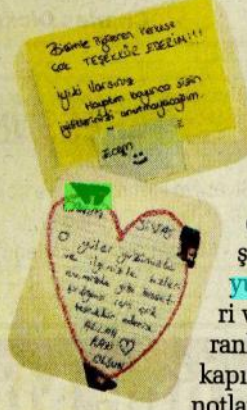 Bizimle ilgilenen herkese
çok TEŞEKKÜR EDERİM!!!
İyiki Varsınız
Hayatım boyunca sizin
unutmayacağım.
SİVAS
O güler yüzünüzle
ve ilginizle bizleri
evimizde gibi hisset
için çok
teşekkür ederiz
ALLAH
RAZI
OLSUN
ş
yu
ri v
ran
kapı
notla